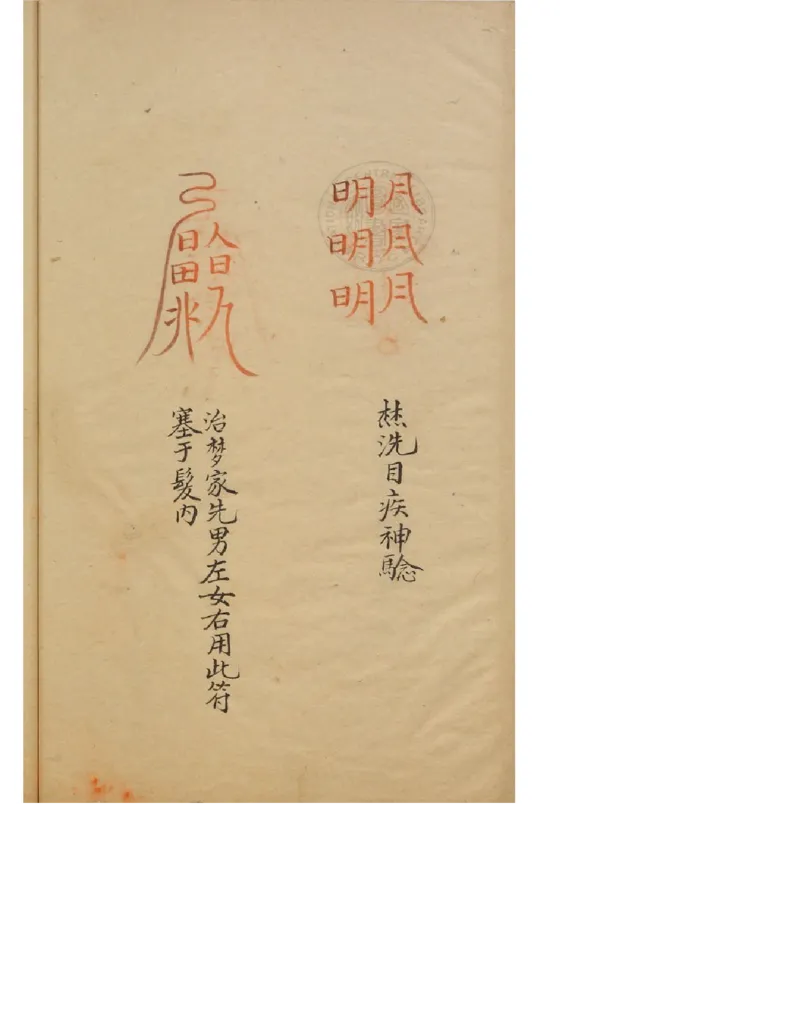 明月
明月
明月
焚洗目疾神驗
治梦家先男左女右用此符
塞于髮内